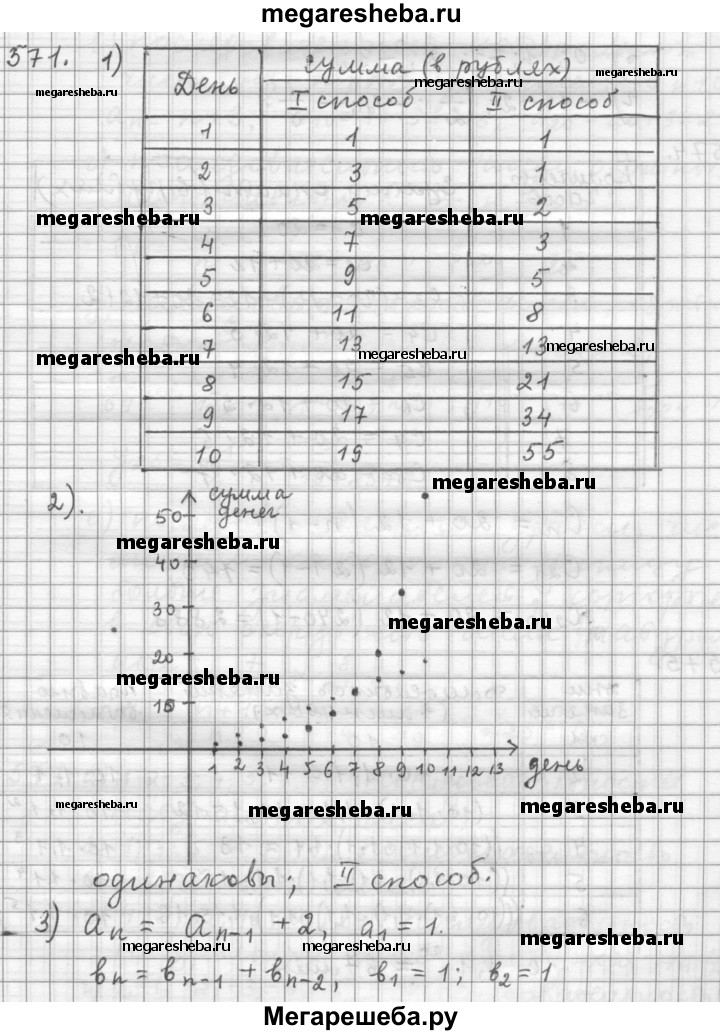 megaresheba.ru
571. 1)
День Сумма (в рублях)
I способ II способ
megaresheba.ru megaresheba.ru megaresheba.ru
1 1 1
2 3 1
3 5 2
megaresheba.ru megaresheba.ru
4 7 3
5 9 5
6 11 8
7 13 13
megaresheba.ru megaresheba.ru megaresheba.ru
8 15 21
9 17 34
10 19 55
megaresheba.ru
2).
сумма
денег
50
megaresheba.ru
40
30
megaresheba.ru
20
megaresheba.ru
10
1 2 3 4 5 6 7 8 9 10 11 12 13 день
megaresheba.ru megaresheba.ru megaresheba.ru
одинаковы; II способ.
3) aₙ = aₙ₋₁ + 2, a₁ = 1.
megaresheba.ru megaresheba.ru megaresheba.ru
вₙ = вₙ₋₁ + вₙ₋₂, в₁ = 1; в₂ = 1
Мегарешеба.ру